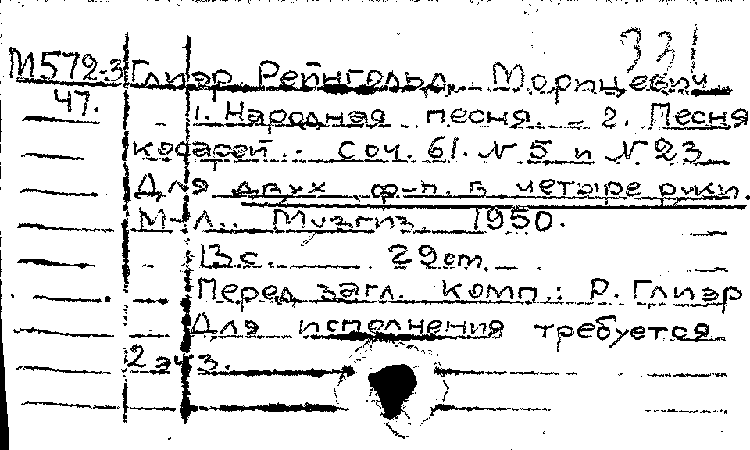 331
М572-3 Глиэр, Рейнгольд Морицевич
47. 1. Народная песня. - 2. Песня
косарей.- Соч. 61. N 5 и N 23
Для двух ф-п. в четыре руки.
М-Л., Музгиз, 1950.
13 с. 29 cm.
Перед загл. комп.: Р. Глиэр
Для исполнения требуется
2 экз.